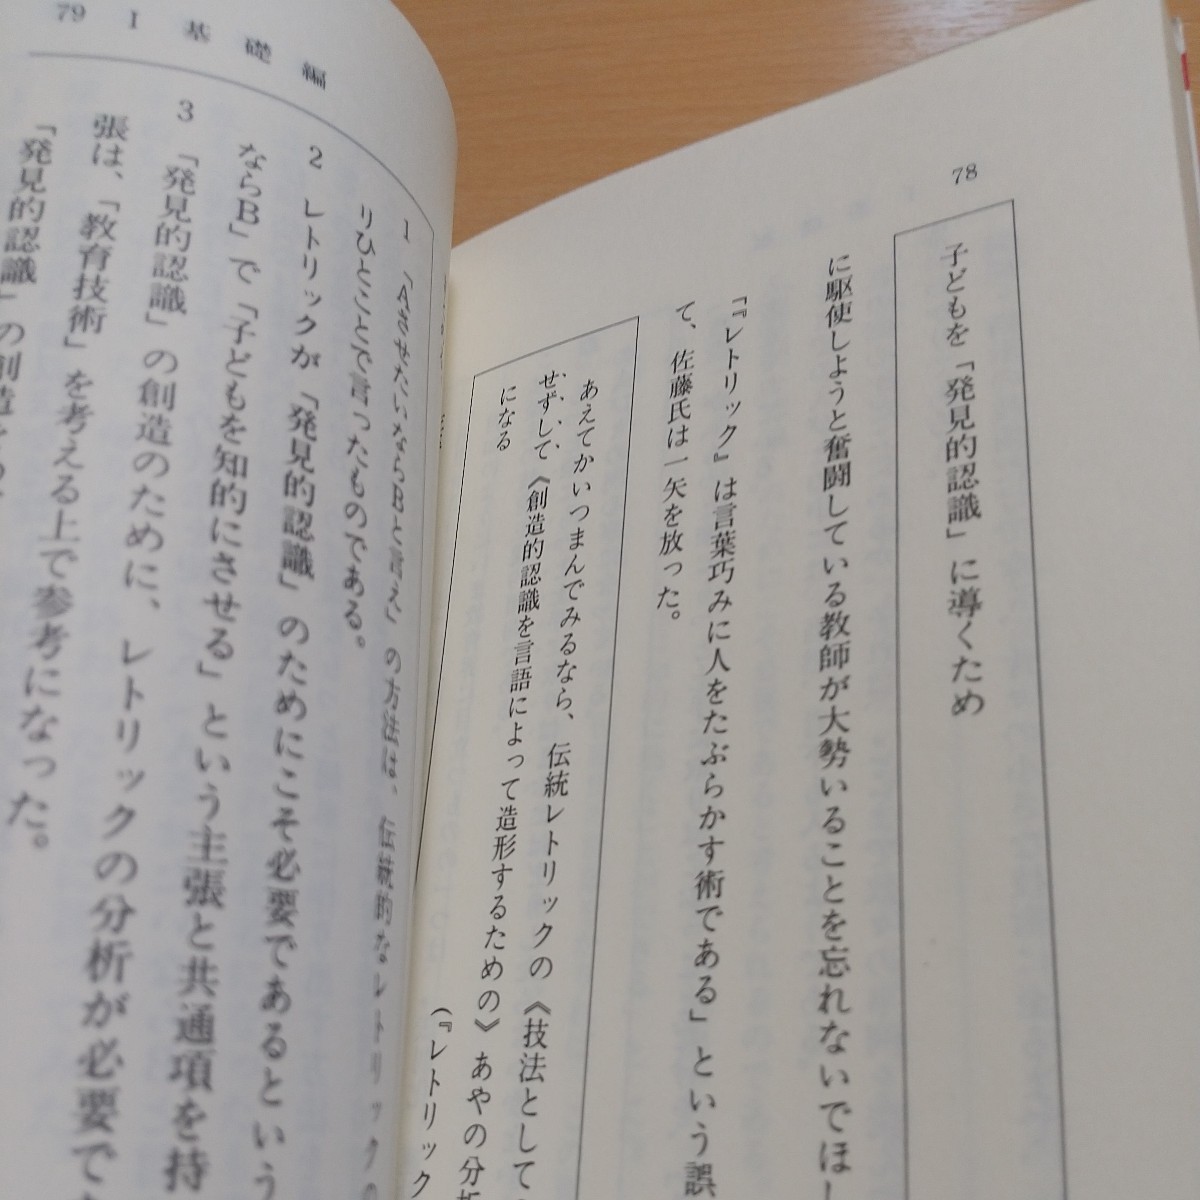 78
子どもを「発見的認識」に導くため
に駆使しようと奮闘している教師が大勢いることを忘れないでほし
「『レトリック』は言葉巧みに人をたぶらかす術である」という誤
て、佐藤氏は一矢を放った。
あえてかいつまんでみるなら、伝統レトリックの《技法として
せずして《創造的認識を言語によって造形するための》あやの分析
になる
(『レトリック
79 I 基礎編
1 「AさせたいならBと言え」の方法は、伝統的なレトリックの
りひとことで言ったものである。
2 レトリックが「発見的認識」のためにこそ必要であるという
ならB」で「子どもを知的にさせる」という主張と共通項を持
3 「発見的認識」の創造のために、レトリックの分析が必要で
張は、「教育技術」を考える上で参考になった。
「発見的認識」の創造